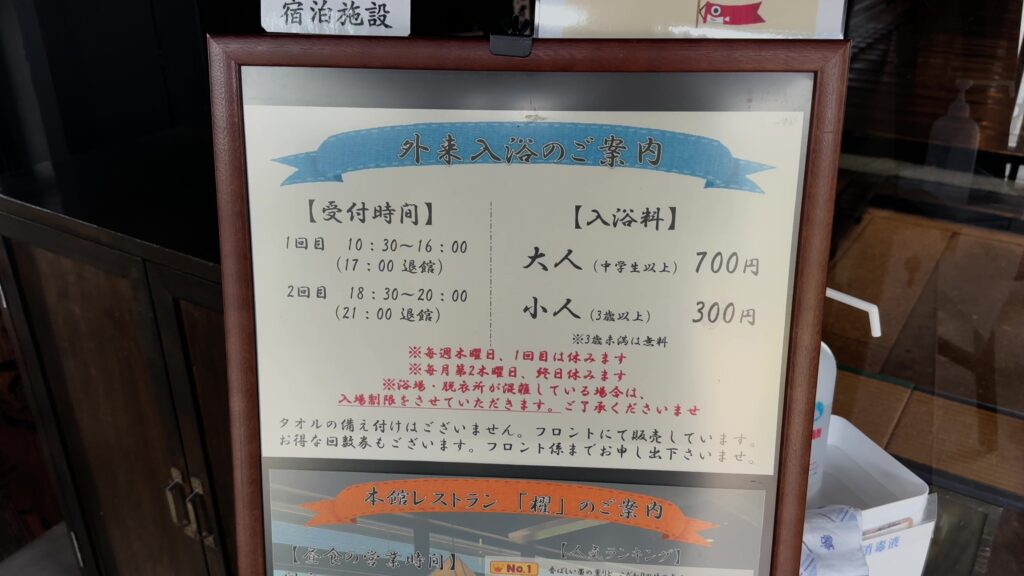 宿泊施設
外来入浴のご案内
【受付時間】
1回目 10:30～16:00
(17:00 退館)
2回目 18:30～20:00
(21:00 退館)
【入浴料】
大人 (中学生以上) 700円
小人 (3歳以上) 300円
※3歳未満は無料
※毎週木曜日、1回目は休みます
※毎月第2木曜日、終日休みます
※浴場・脱衣所が混雑している場合は、
入場制限をさせていただきます。ご了承くださいませ
タオルの備え付けはございません。フロントにて販売しています。
お得な回数券もございます。フロント係までお申し出下さいませ。
本館レストラン「欅」のご案内
【昼食の営業時間】
【人気ランキング】
No.1
消毒液